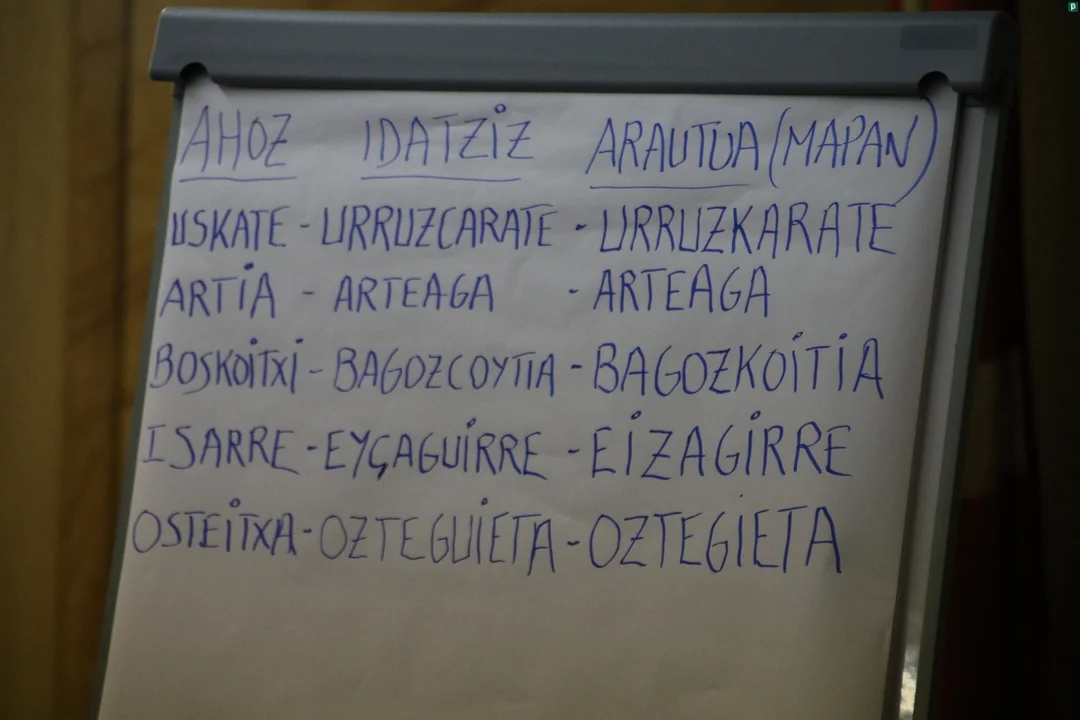 AHOZ IDATZIZ ARAUTUA (MAPAN)
USKATE - URRUZCARATE - URRUZKARATE
ARTIA - ARTEAGA - ARTEAGA
BOSKOITXI - BAGOZCOYTIA - BAGOZKOITIA
ISARRE - EYÇAGUIRRE - EIZAGIRRE
OSTEITXA - OZTEGUIETA - OZTEGIETA